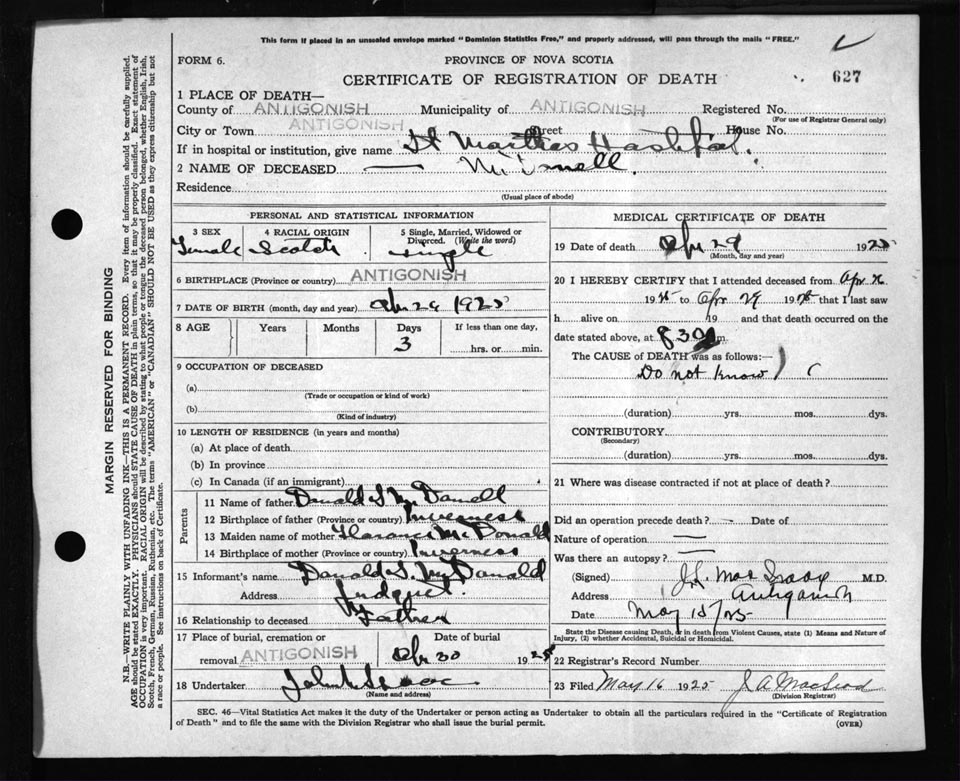 This form if placed in an unsealed envelope marked "Dominion Statistics Free," and properly addressed, will pass through the mails "FREE."
FORM 6.
PROVINCE OF NOVA SCOTIA
CERTIFICATE OF REGISTRATION OF DEATH
627
1 PLACE OF DEATH—
County of ANTIGONISH Municipality of ANTIGONISH Registered No.
(For use of Registrar General only)
City or Town ANTIGONISH Street House No.
If in hospital or institution, give name St Marthas Hospital.
2 NAME OF DECEASED
Residence
(Usual place of abode)
PERSONAL AND STATISTICAL INFORMATION
3 SEX 4 RACIAL ORIGIN 5 Single, Married, Widowed or Divorced. (Write the word)
Female Scotch single
6 BIRTHPLACE (Province or country) ANTIGONISH
7 DATE OF BIRTH (month, day and year) 1925
8 AGE Years Months Days If less than one day,
3 hrs. or min.
9 OCCUPATION OF DECEASED
(a)
(Trade or occupation or kind of work)
(b)
(Kind of industry)
10 LENGTH OF RESIDENCE (in years and months)
(a) At place of death
(b) In province
(c) In Canada (if an immigrant)
Parents
11 Name of father Donald
12 Birthplace of father (Province or country) Inverness
13 Maiden name of mother Florance McDonald
14 Birthplace of mother (Province or country) Inverness
15 Informant's name Donald McDonald
Address
16 Relationship to deceased Father
17 Place of burial, cremation or Date of burial
removal ANTIGONISH Apr 30 1925
18 Undertaker John
(Name and address)
MEDICAL CERTIFICATE OF DEATH
19 Date of death Apr 29 1925
(Month, day and year)
20 I HEREBY CERTIFY that I attended deceased from Apr
19 to Apr 29 19 that I last saw
h alive on 19 and that death occurred on the
date stated above, at 8 30 m.
The CAUSE of DEATH was as follows:—
Do not know
(duration) yrs. mos. dys.
CONTRIBUTORY
(Secondary)
(duration) yrs. mos. dys.
21 Where was disease contracted if not at place of death?
Did an operation precede death? — Date of
Nature of operation —
Was there an autopsy? —
(Signed) M.D.
Address Antigonish
Date May 15/25
State the Disease causing Death, or in death from Violent Causes, state (1) Means and Nature of
Injury, (2) whether Accidental, Suicidal or Homicidal.
22 Registrar's Record Number
23 Filed May 16 1925 J A MacLeod
(Division Registrar)
SEC. 46—Vital Statistics Act makes it the duty of the Undertaker or person acting as Undertaker to obtain all the particulars required in the "Certificate of Registration
of Death" and to file the same with the Division Registrar who shall issue the burial permit.
(OVER)
MARGIN RESERVED FOR BINDING
N.B.—WRITE PLAINLY WITH UNFADING INK—THIS IS A PERMANENT RECORD. Every item of information should be carefully supplied.
AGE should be stated EXACTLY. PHYSICIANS should STATE CAUSE OF DEATH in plain terms, so that it may be properly classified. Exact statement of
OCCUPATION is very important. RACIAL ORIGIN will be described by stating to what people or tongue the deceased person belonged, whether English, Irish,
Scotch, French, German, Russian, Ruthenian, etc. The terms "AMERICAN" or "CANADIAN" SHOULD NOT BE USED as they express citizenship but not
a race or people. See instructions on back of Certificate.